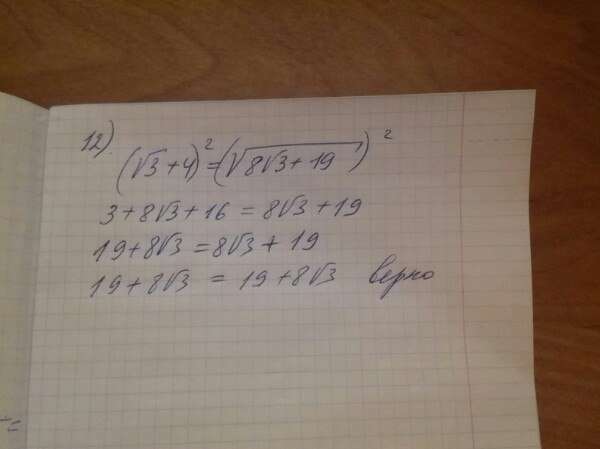 12)
(√3 + 4)² = (√(8√3 + 19))²
3 + 8√3 + 16 = 8√3 + 19
19 + 8√3 = 8√3 + 19
19 + 8√3 = 19 + 8√3 верно